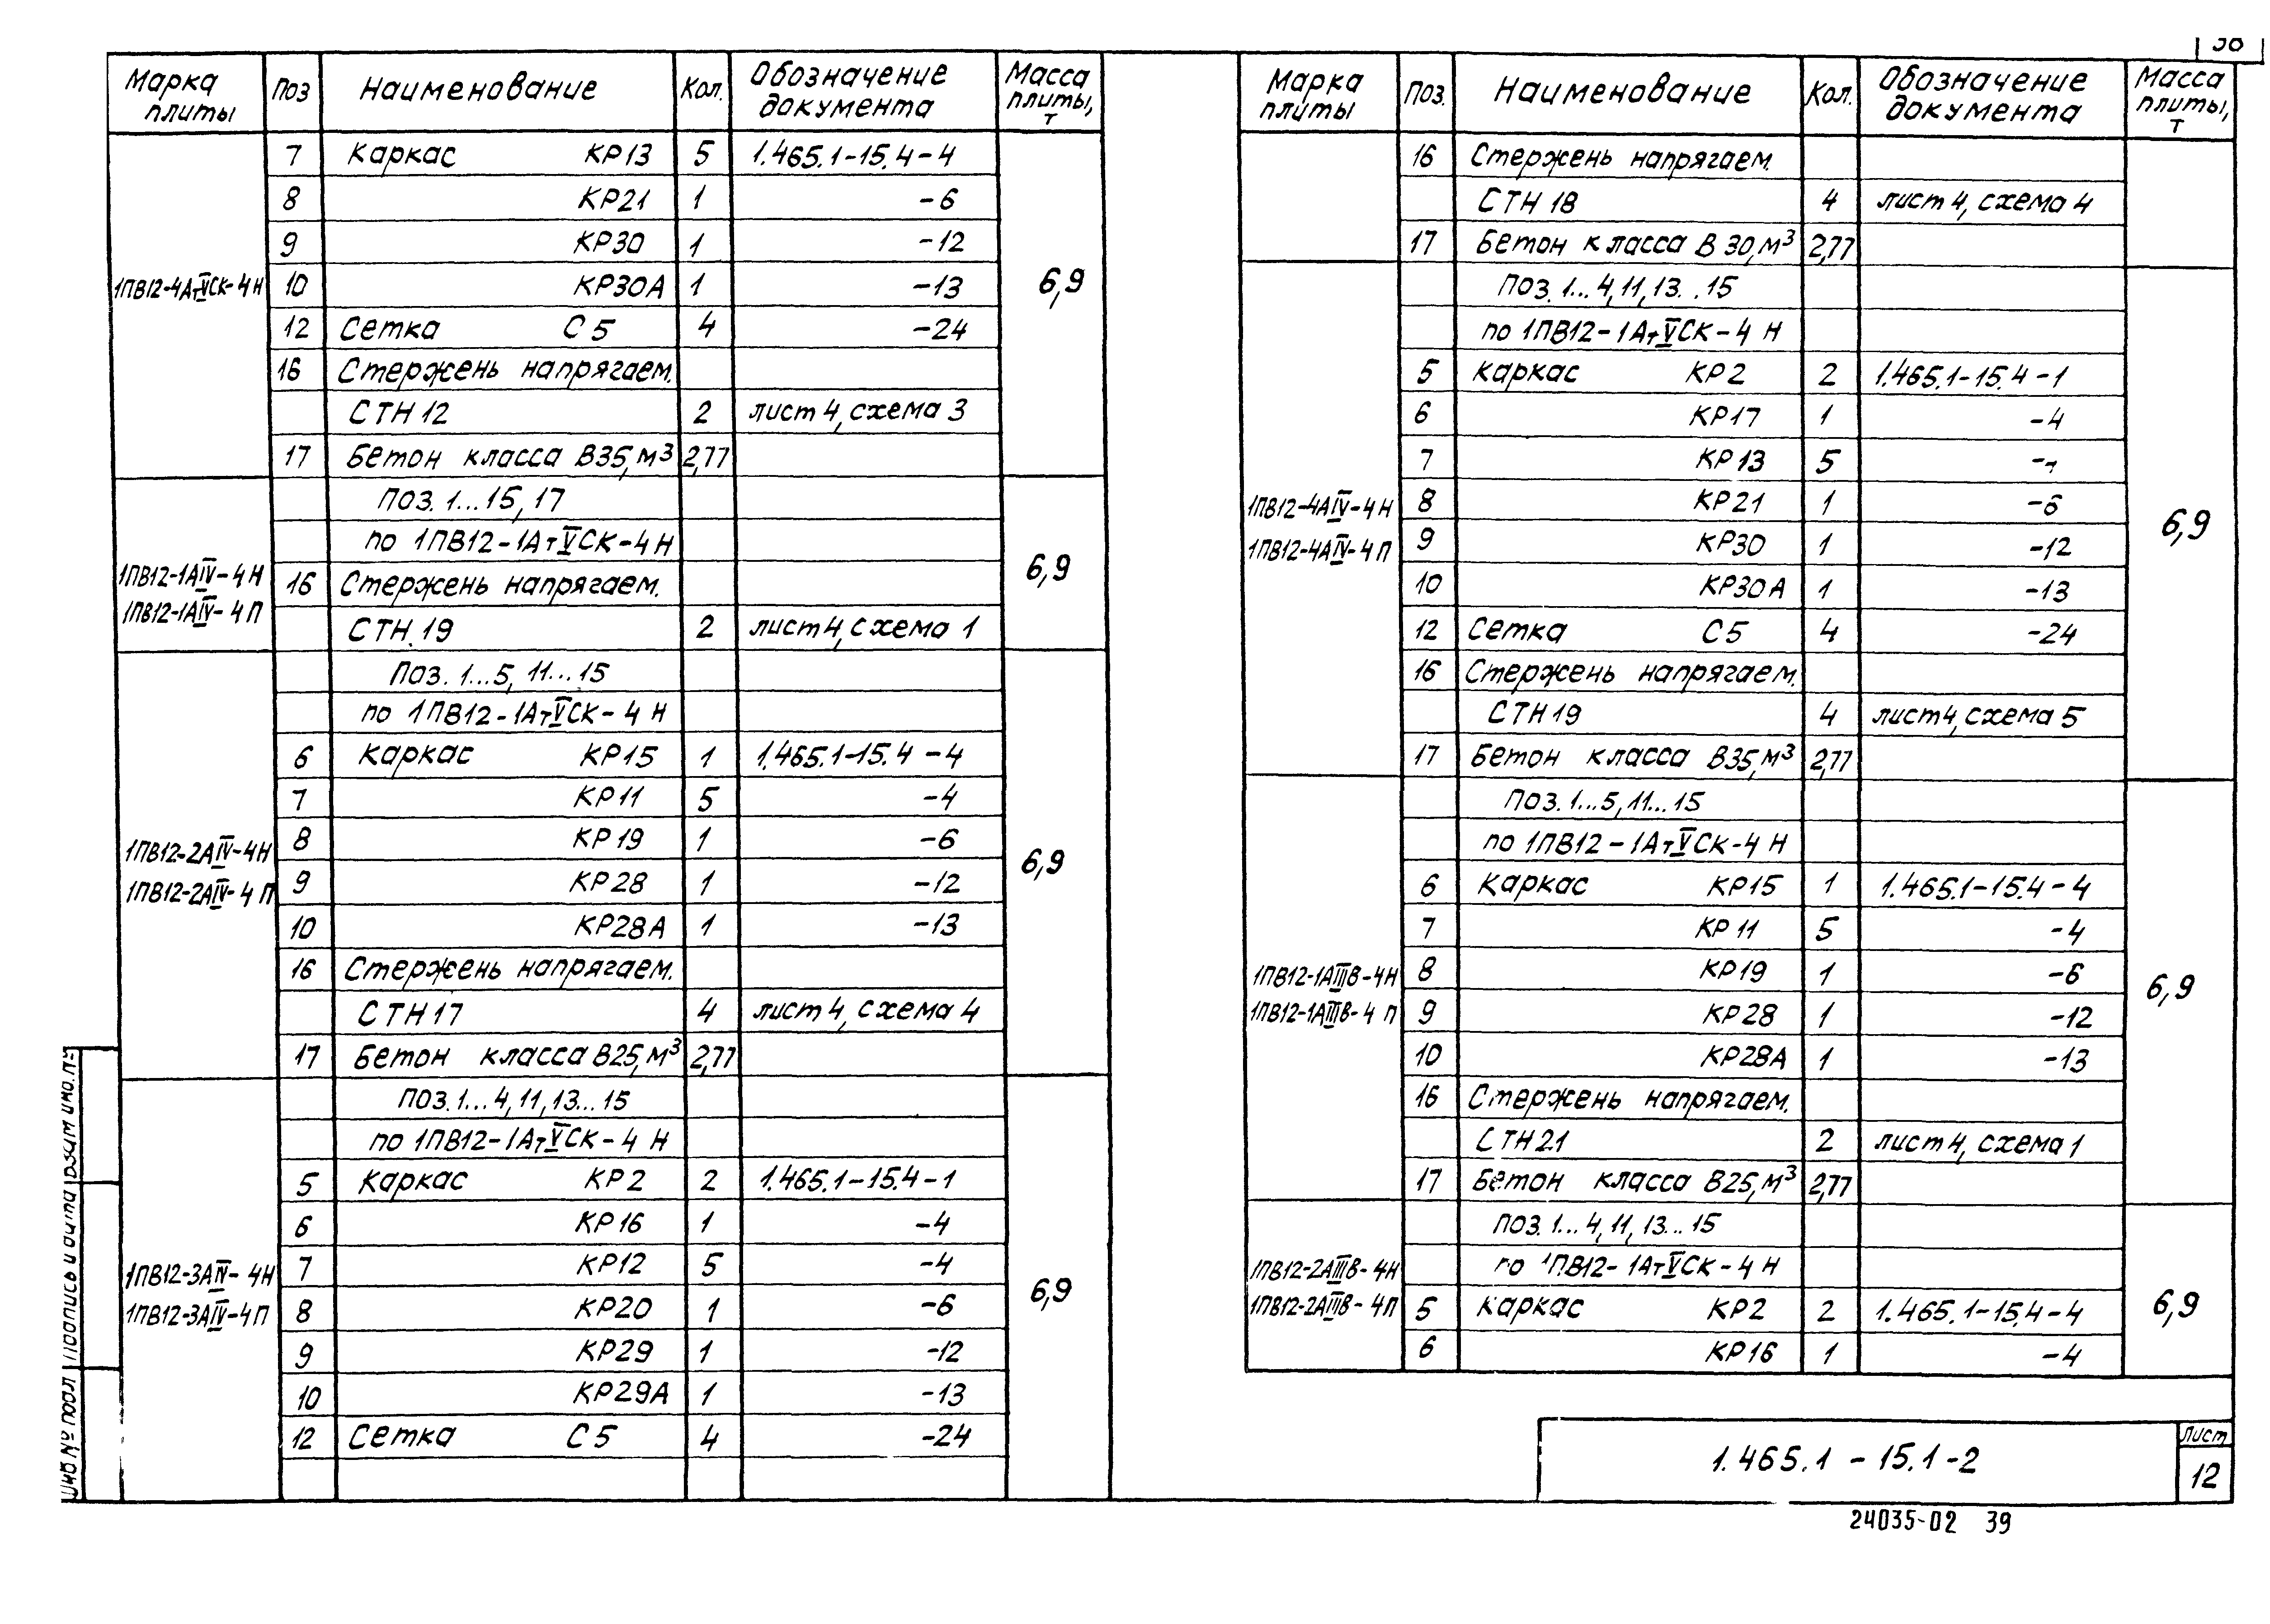 Марка плиты | Поз | Наименование | Кол. | Обозначение документа | Масса плиты, т
1ПВ12-4АтⅤСК-4Н | 6,9
7 Каркас КР13 5 1.465.1-15.4-4
8 КР21 1 -6
9 КР30 1 -12
10 КР30А 1 -13
12 Сетка С5 4 -24
16 Стержень напрягаем.
СТН12 2 лист 4, схема 3
17 Бетон класса В35, м³ 2,77
1ПВ12-1АⅣ-4Н
1ПВ12-1АⅣ-4П
6,9
Поз. 1...15, 17
по 1ПВ12-1АтⅤСК-4Н
16 Стержень напрягаем.
СТН.19 2 лист 4, схема 1
1ПВ12-2АⅣ-4Н
1ПВ12-2АⅣ-4П
6,9
Поз. 1...5, 11...15
по 1ПВ12-1АтⅤСК-4Н
6 Каркас КР15 1 1.465.1-15.4-4
7 КР11 5 -4
8 КР19 1 -6
9 КР28 1 -12
10 КР28А 1 -13
16 Стержень напрягаем.
СТН17 4 лист 4, схема 4
17 Бетон класса В25, м³ 2,77
1ПВ12-3АⅣ-4Н
1ПВ12-3АⅣ-4П
6,9
Поз. 1...4, 11, 13...15
по 1ПВ12-1АтⅤСК-4Н
5 Каркас КР2 2 1.465.1-15.4-1
6 КР16 1 -4
7 КР12 5 -4
8 КР20 1 -6
9 КР29 1 -12
10 КР29А 1 -13
12 Сетка С5 4 -24
Марка плиты | Поз. | Наименование | Кол. | Обозначение документа | Масса плиты, т
16 Стержень напрягаем.
СТН18 4 лист 4, схема 4
17 Бетон класса В30, м³ 2,77
1ПВ12-4АⅣ-4Н
1ПВ12-4АⅣ-4П
6,9
Поз. 1...4, 11, 13..15
по 1ПВ12-1АтⅤСК-4Н
5 Каркас КР2 2 1.465.1-15.4-1
6 КР17 1 -4
7 КР13 5
8 КР21 1 -6
9 КР30 1 -12
10 КР30А 1 -13
12 Сетка С5 4 -24
16 Стержень напрягаем.
СТН19 4 лист 4, схема 5
17 Бетон класса В35, м³ 2,77
1ПВ12-1АⅢВ-4Н
1ПВ12-1АⅢВ-4П
6,9
Поз. 1...5, 11...15
по 1ПВ12-1АтⅤСК-4Н
6 Каркас КР15 1 1.465.1-15.4-4
7 КР11 5 -4
8 КР19 1 -6
9 КР28 1 -12
10 КР28А 1 -13
16 Стержень напрягаем.
СТН21 2 лист 4, схема 1
17 Бетон класса В25, м³ 2,77
1ПВ12-2АⅢВ-4Н
1ПВ12-2АⅢВ-4П
6,9
Поз. 1...4, 11, 13...15
по 1ПВ12-1АтⅤСК-4Н
5 Каркас КР2 2 1.465.1-15.4-4
6 КР16 1 -4
1.465.1-15.1-2
Лист
12
24035-02 39
Инв № подл Подпись и дата